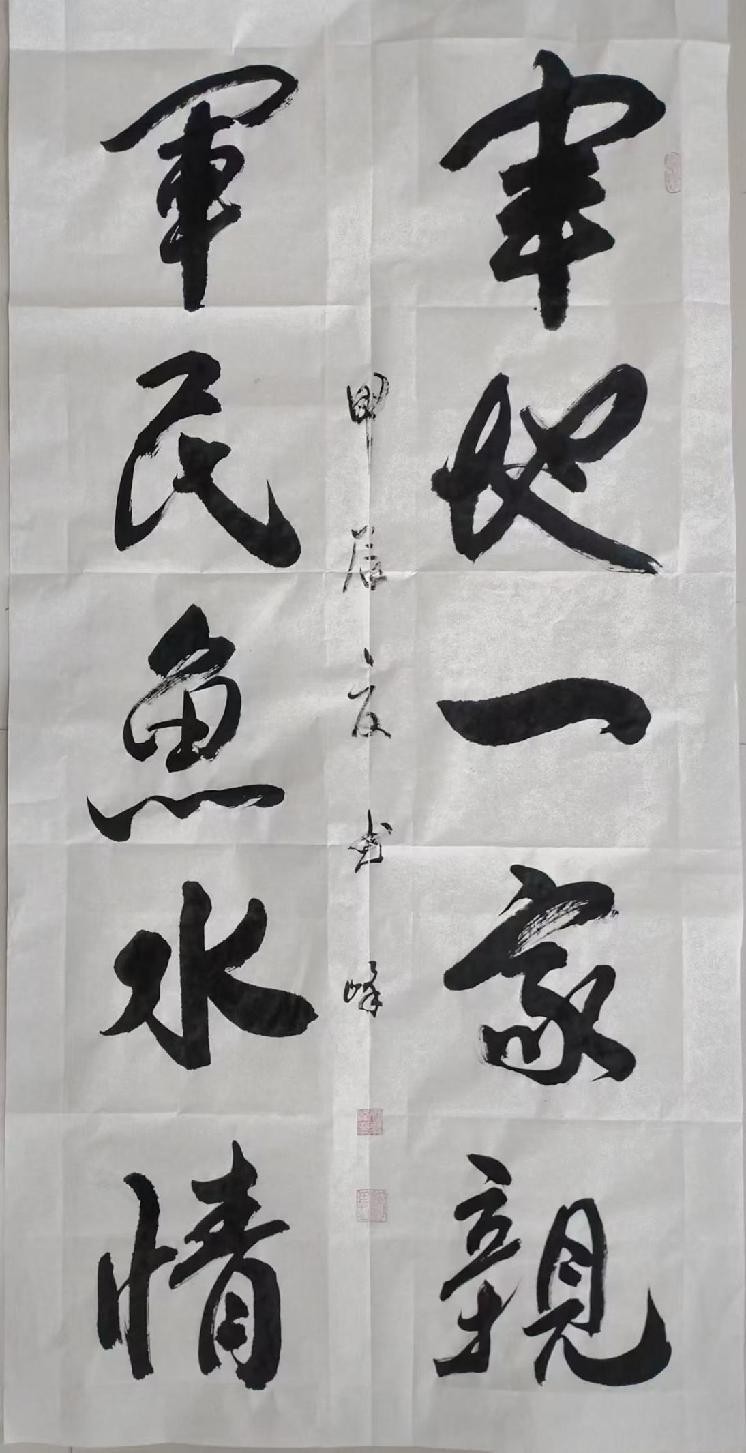 軍地一家親
軍民魚水情
甲辰夏 峰